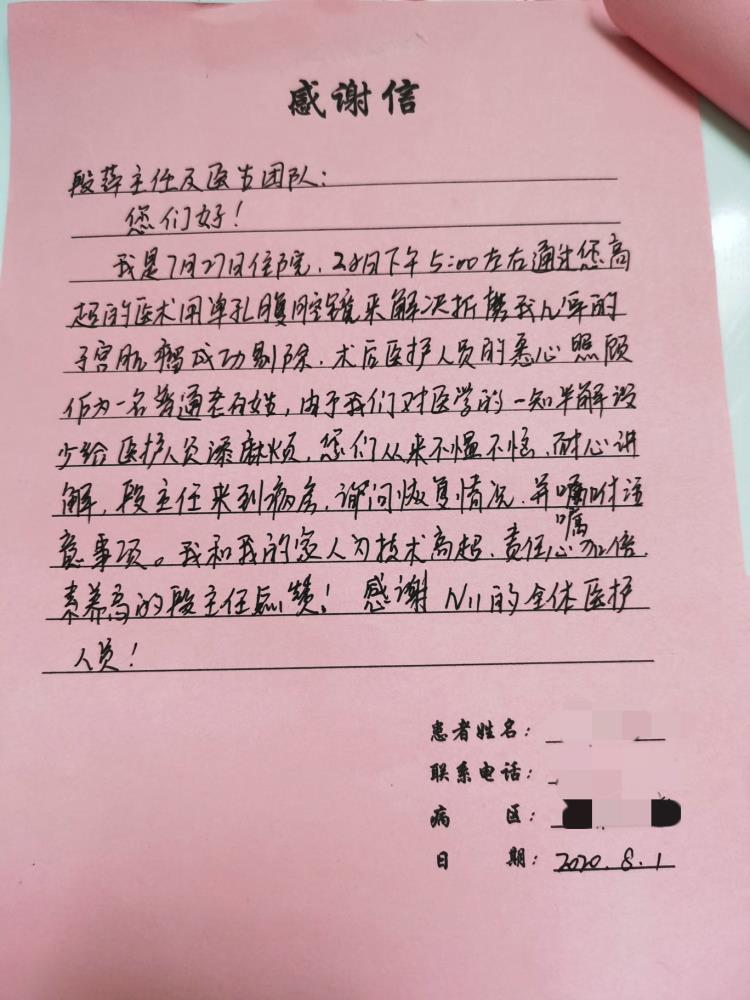 感谢信
段萍主任及医生团队：
您们好！
我是7月27日住院，28日下午5:00左右通过您高
超的医术用单孔腹腔镜来解决折磨我几年的
子宫肌瘤成功剔除，术后医护人员的悉心照顾
作为一名普通老百姓，由于我们对医学的一知半解没
少给医护人员添麻烦，您们从来不愠不恼，耐心讲
解，段主任来到病房，询问恢复情况，并嘱咐注
嘱
意事项。我和我的家人为技术高超，责任心加倍，
素养高的段主任点赞！感谢N11的全体医护
人员！
患者姓名：
联系电话：
病 区：
日 期：2020.8.1